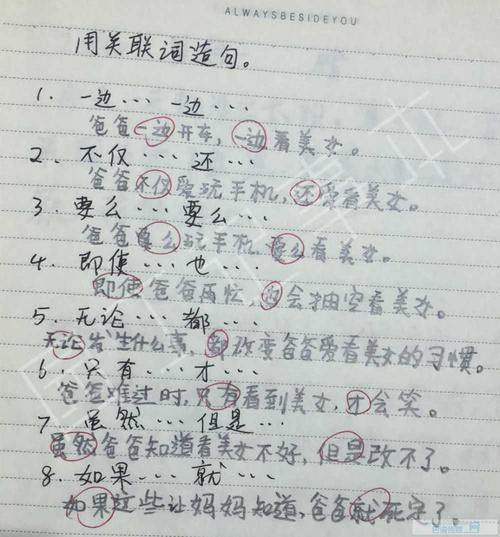 ALWAYSBESIDEYOU
用关联词造句。
1. 一边…一边…
爸爸一边开车,一边看美女。
2. 不仅…还…
爸爸不仅爱玩手机,还爱看美女。
3. 要么…要么…
爸爸要么玩手机,要么看美女。
4. 即使…也…
即使爸爸再忙,也会抽空看美女。
5. 无论…都…
无论发生什么事,都改变爸爸爱看美女的习惯。
6. 只有…才…
爸爸难过时,只有看到美女,才会笑。
7. 虽然…但是…
虽然爸爸知道看美女不好,但是改不了。
8. 如果…就…
如果这些让妈妈知道,爸爸就死定了。